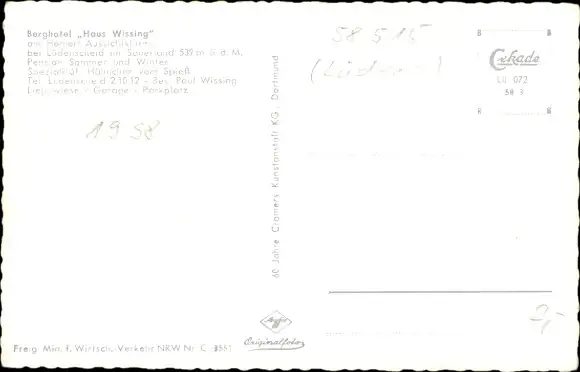 Berghotel „Haus Wissing"
am Homert Aussichtsturm
bei Lüdenscheid im Sauerland 539 m ü. d. M.
Pension Sommer und Winter
Spezialität: Hähnchen vom Spieß
Tel. Lüdenscheid 2 10 12 - Bes. Paul Wissing
Liegewiese - Garage - Parkplatz
1958
60 Jahre Cramers Kunstanstalt KG, Dortmund
58515
(Lüden
Cekade
LÜ 072
58 3
2,-
Agfa
Originalfoto
Freig. Min. f. Wirtsch. Verkehr NRW Nr. C. 3551